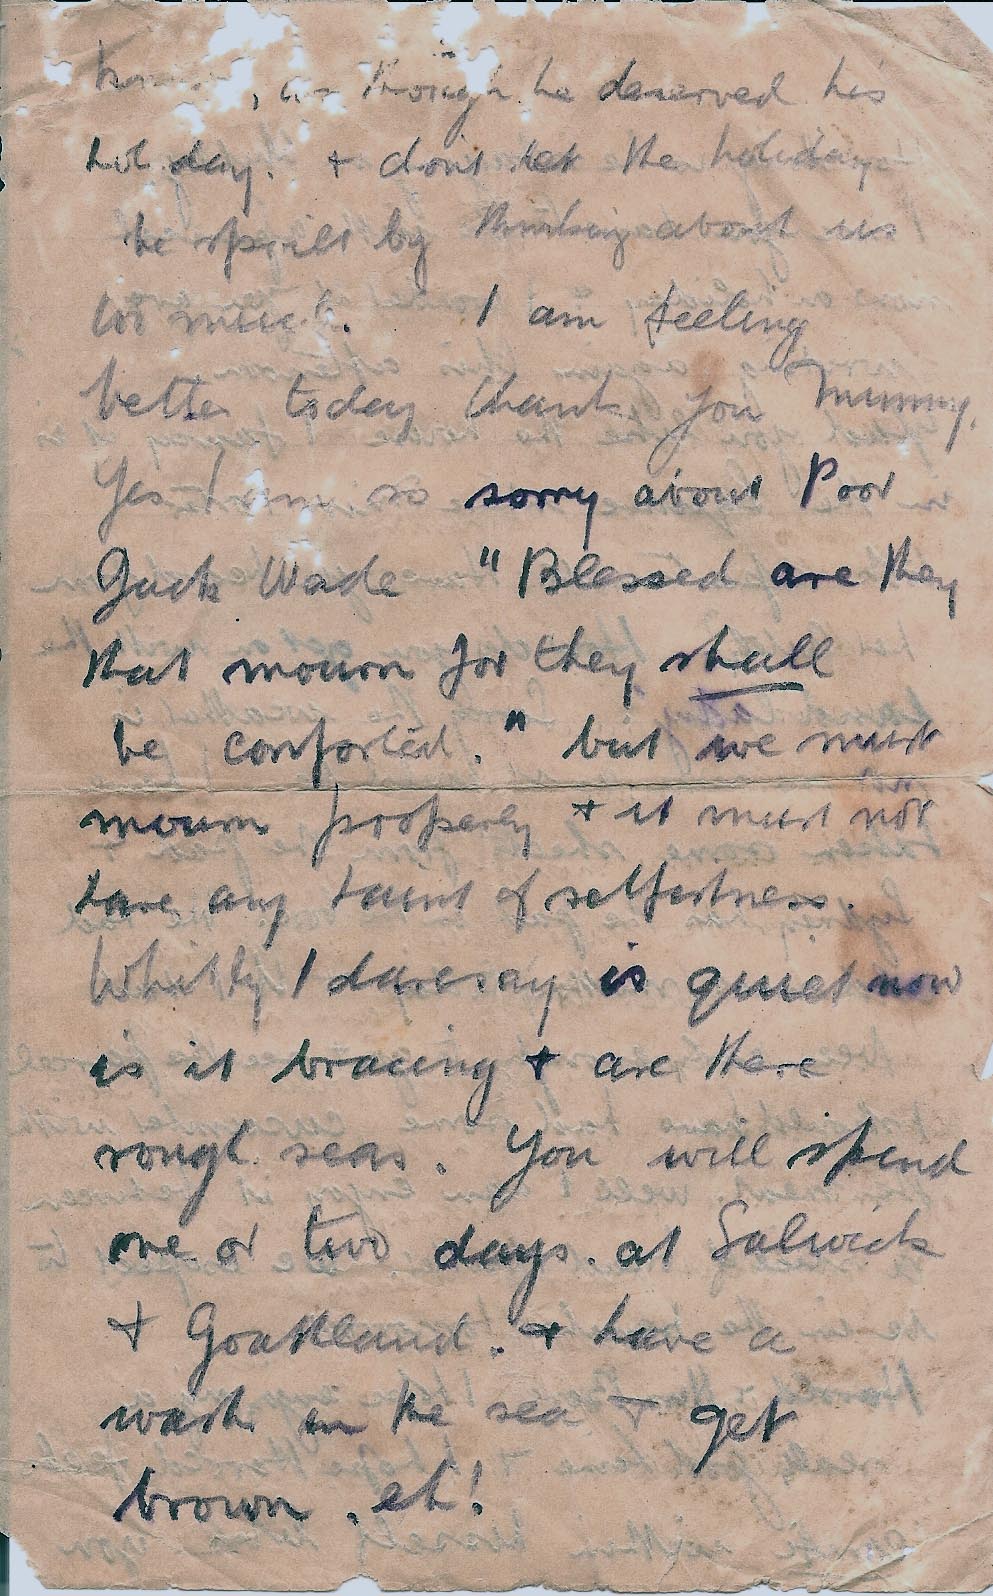 , as though he deserved his
holiday. + dont let the holidays
be spoilt by thinking about us
too much. I am feeling
better today thank you Mummy.
Yes I am so sorry about Poor
Jack Wade "Blessed are they
that mourn for they shall
be comforted." but we must
mourn properly + it must not
have any taint of selfishness.
Whitby I daresay is quiet now
is it bracing + are there
rough seas. You will spend
one or two days. at Salwick
+ Goathland. + have a
wash in the sea + get
brown. eh!